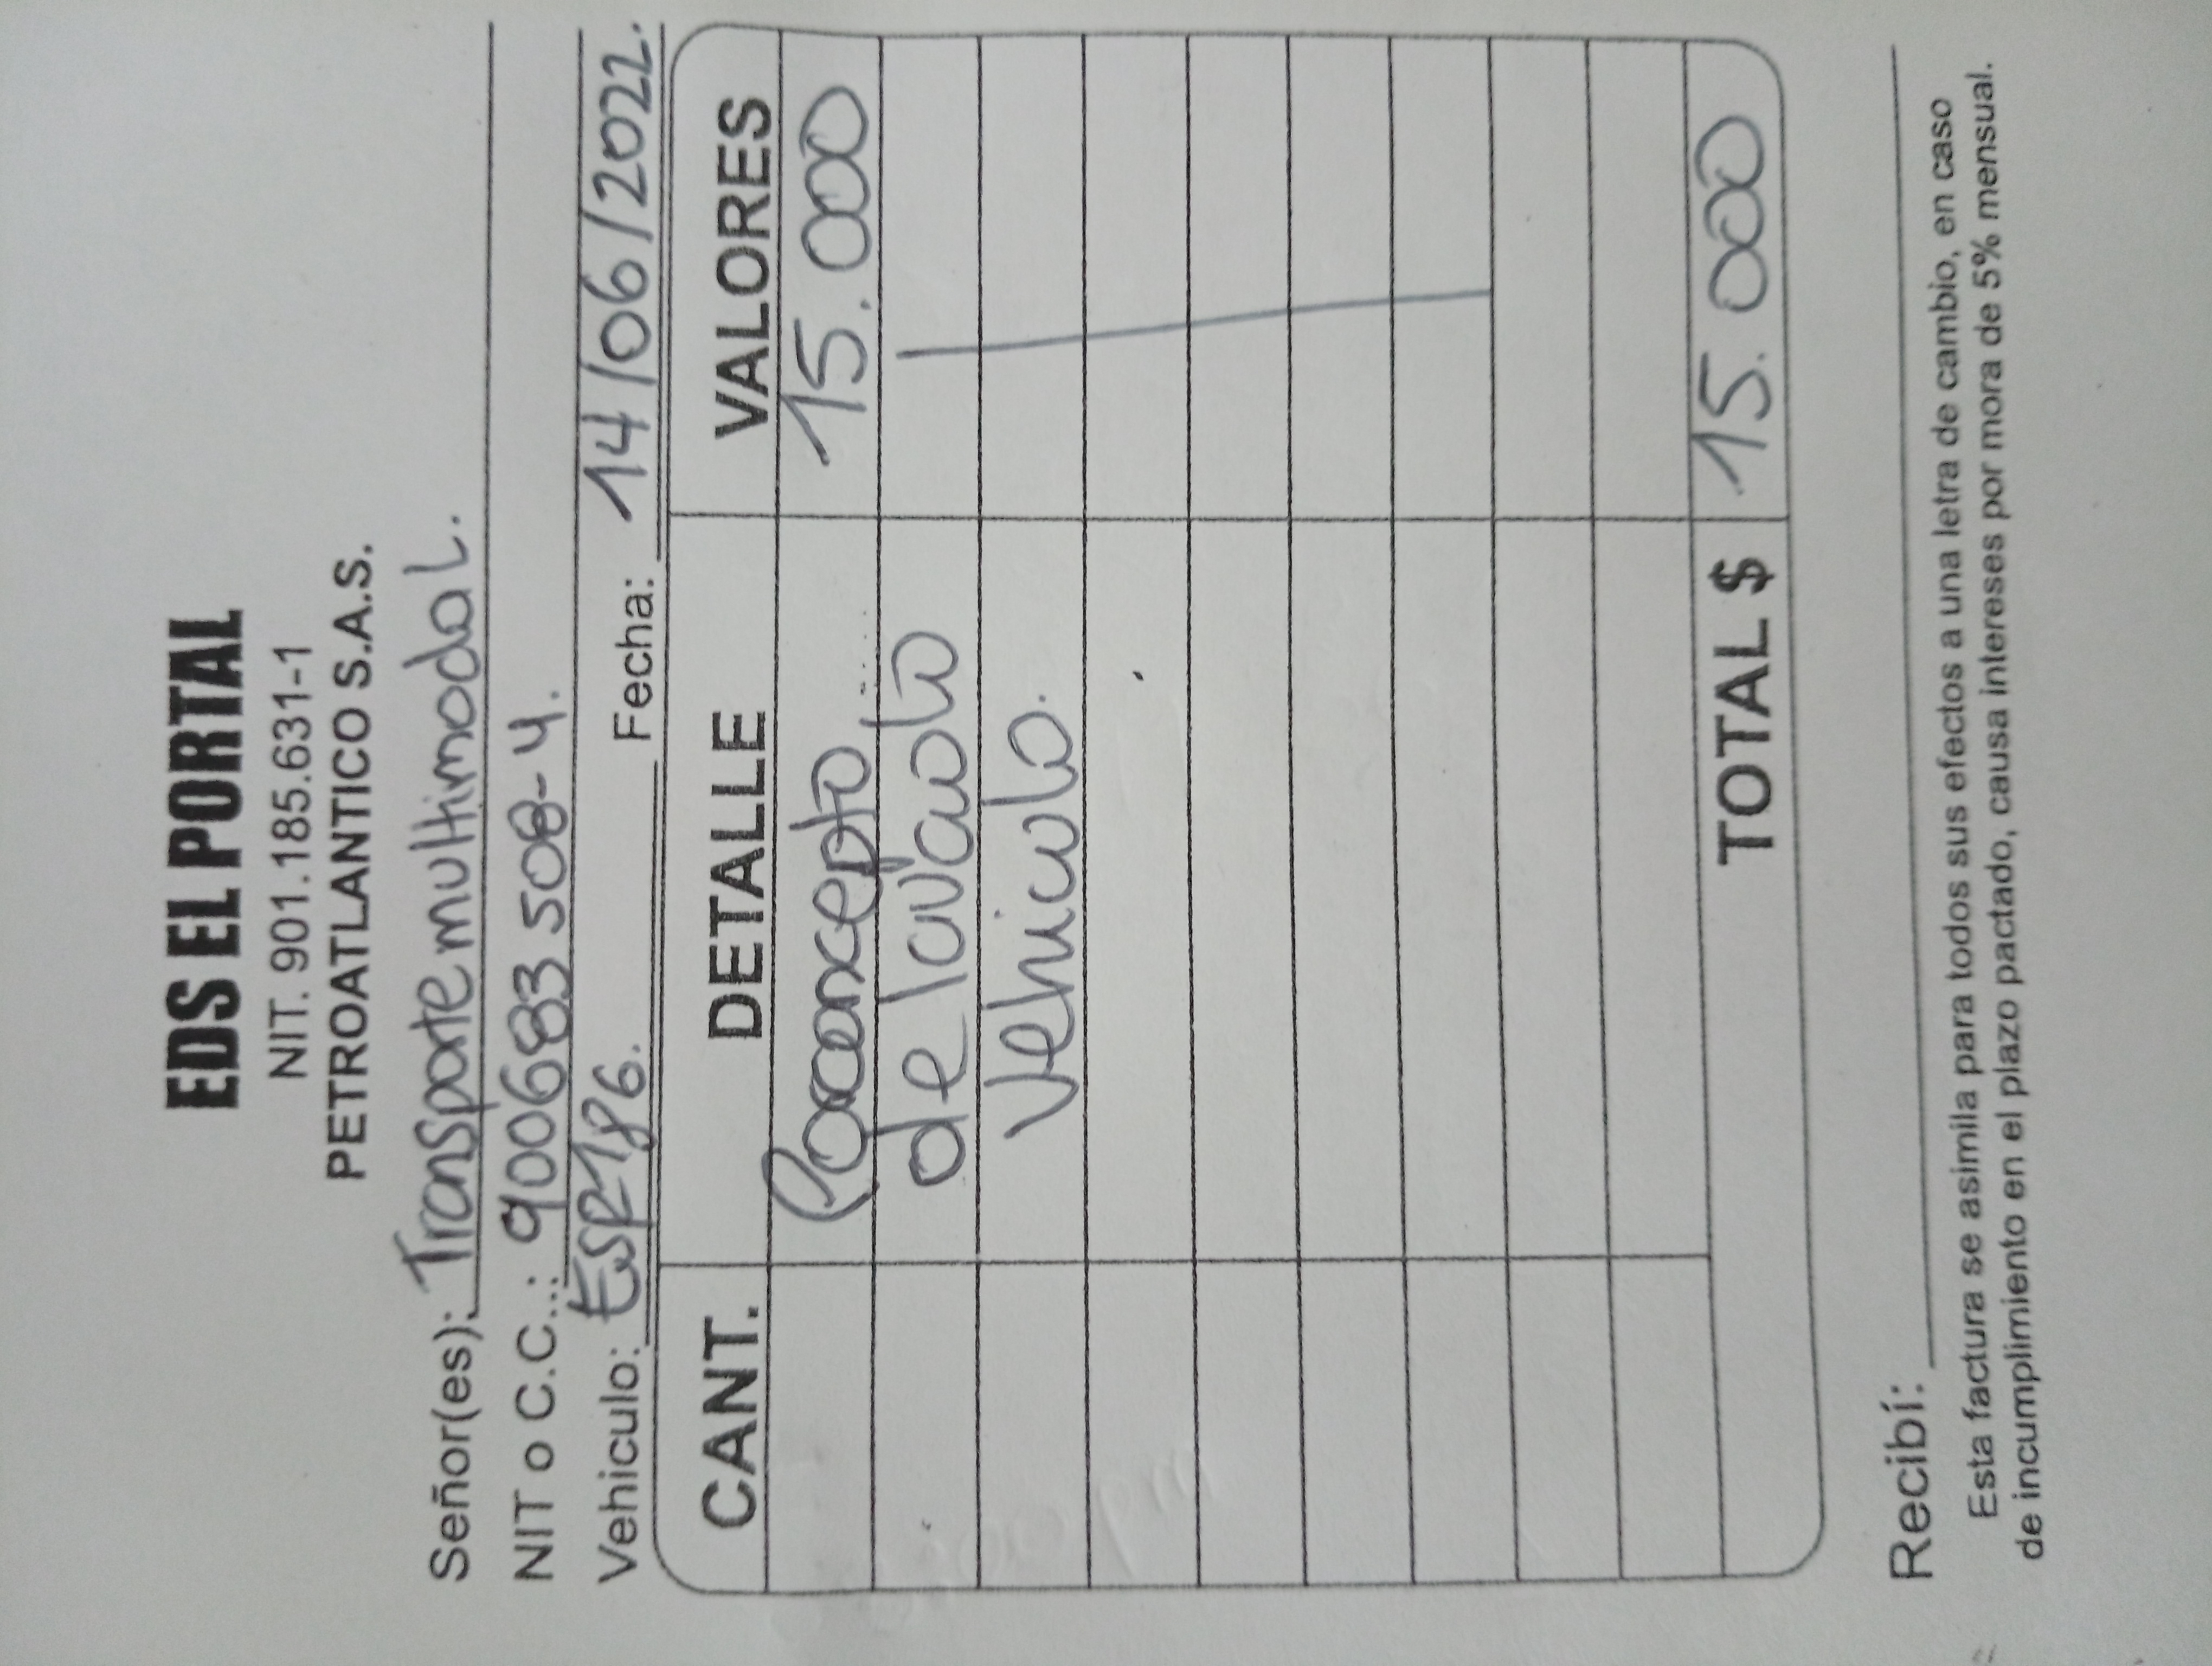 EDS EL PORTAL
NIT. 901.185.631-1
PETROATLANTICO S.A.S.
Señor(es): Transporte multimodal.
NIT o C.C.: 900683508-4.
Vehiculo: ESR186. Fecha: 14/06/2022.
CANT. DETALLE VALORES
concepto 15.000
de lavado
vehiculo.
TOTAL $ 15.000
Recibí:
Esta factura se asimila para todos sus efectos a una letra de cambio, en caso
de incumplimiento en el plazo pactado, causa intereses por mora de 5% mensual.